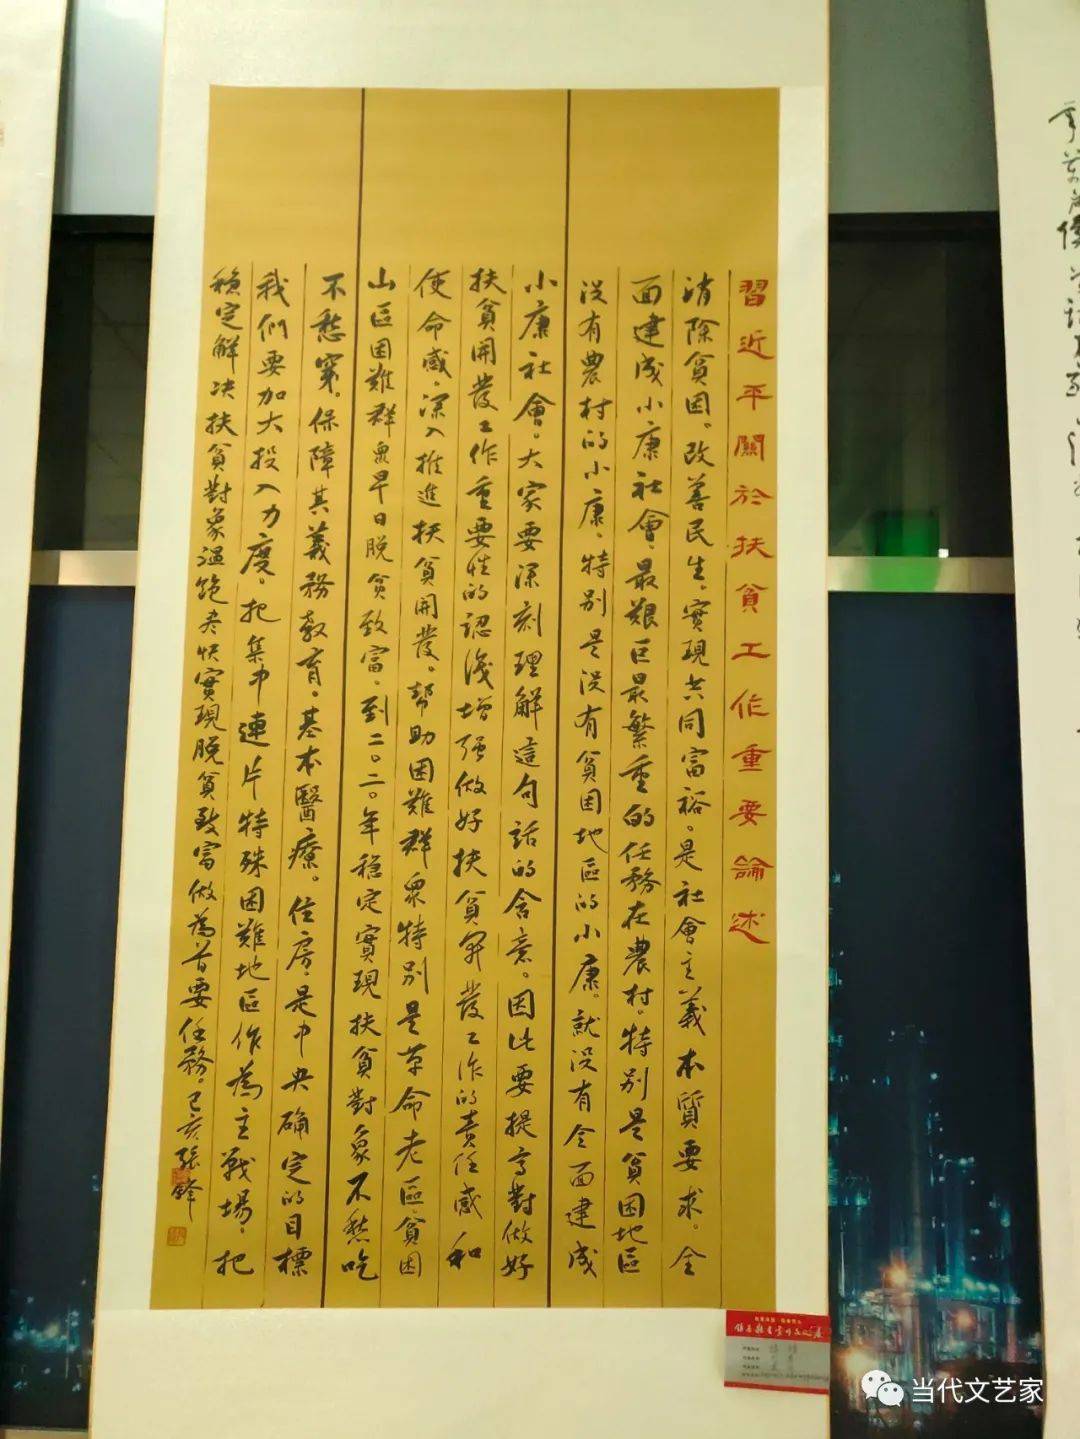 習近平關於扶貧工作重要論述
消除貧困。改善民生。實現共同富裕。是社會主義本質要求。全
面建成小康社會。最艱巨最繁重的任務在農村。特別是貧困地區
没有農村的小康。特别是没有貧困地區的小康。就没有全面建成
小康社會。大家要深刻理解這句話的含意。因此要提高對做好
扶貧開發工作重要性的認識增强做好扶貧開發工作的責任感和
使命感。深入推進扶貧開發。幫助困難群衆特别是革命老區。貧困
山區困難群衆早日脱貧致富。到二〇二〇年稳定實現扶貧對象不愁吃
不愁穿。保障其義務教育。基本醫療。住房。是中央确定的目標
我們要加大投入力度。把集中連片特殊困難地區作為主戰場。把
稳定解决扶貧對象温飽盡快實現脱貧致富做為首要任務。己亥張鋒
当代文艺家